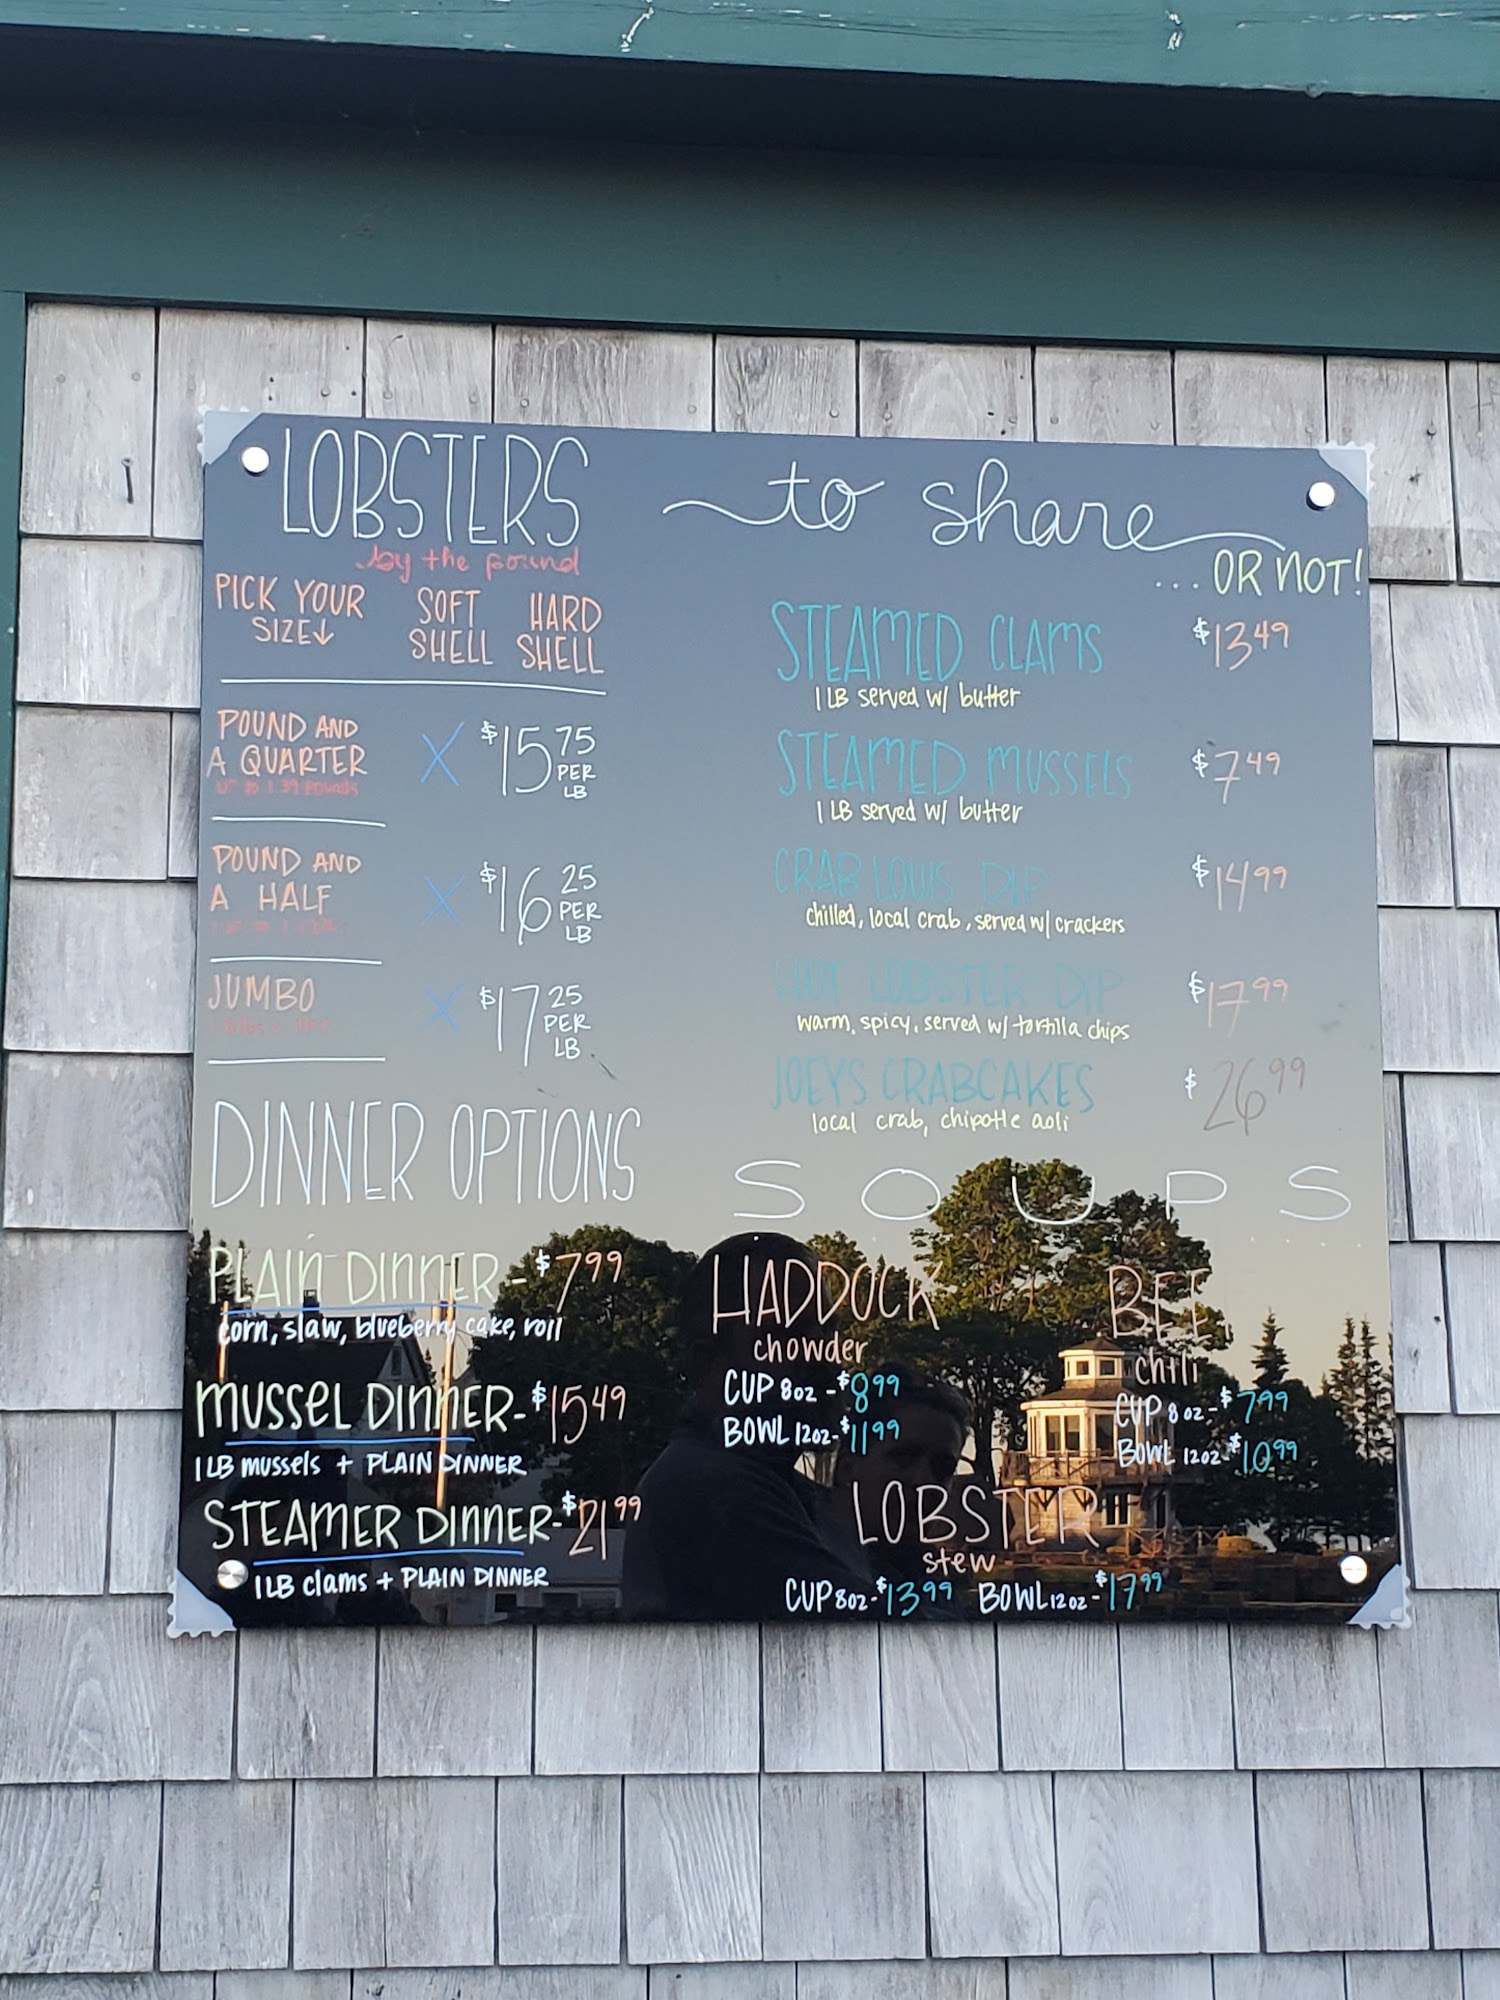 LOBSTERS
by the pound
PICK YOUR SIZE↓ SOFT SHELL HARD SHELL
POUND AND
A QUARTER
UP to 1.39 POUNDS
X $15 75 PER LB
POUND AND
A HALF
X $16 25 PER LB
JUMBO
X $17 25 PER LB
DINNER OPTIONS
PLAIN DINNER - $7 99
corn, slaw, blueberry cake, roll
MUSSEL DINNER - $15 49
1 LB mussels + PLAIN DINNER
STEAMER DINNER - $21 99
1 LB clams + PLAIN DINNER
to share
... OR NOT!
STEAMED CLAMS $13 49
1 LB served w/ butter
STEAMED MUSSELS $7 49
1 LB served w/ butter
CRAB LOUIS DIP $14 99
chilled, local crab, served w/ crackers
HOT LOBSTER DIP $17 99
warm, spicy, served w/ tortilla chips
JOEYS CRABCAKES $26 99
local crab, chipotle aoli
SOUPS
HADDOCK
chowder
CUP 8oz - $8 99
BOWL 12oz - $11 99
BEEF
chili
CUP 8 oz - $7 99
BOWL 12oz - $10 99
LOBSTER
stew
CUP 8oz - $13 99 BOWL 12oz - $17 99